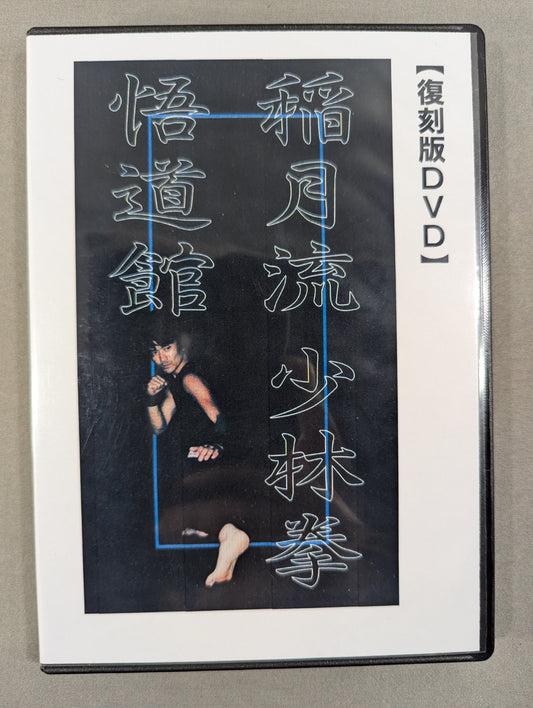 【復刻版DVD】
稲月流 少林拳
悟道館